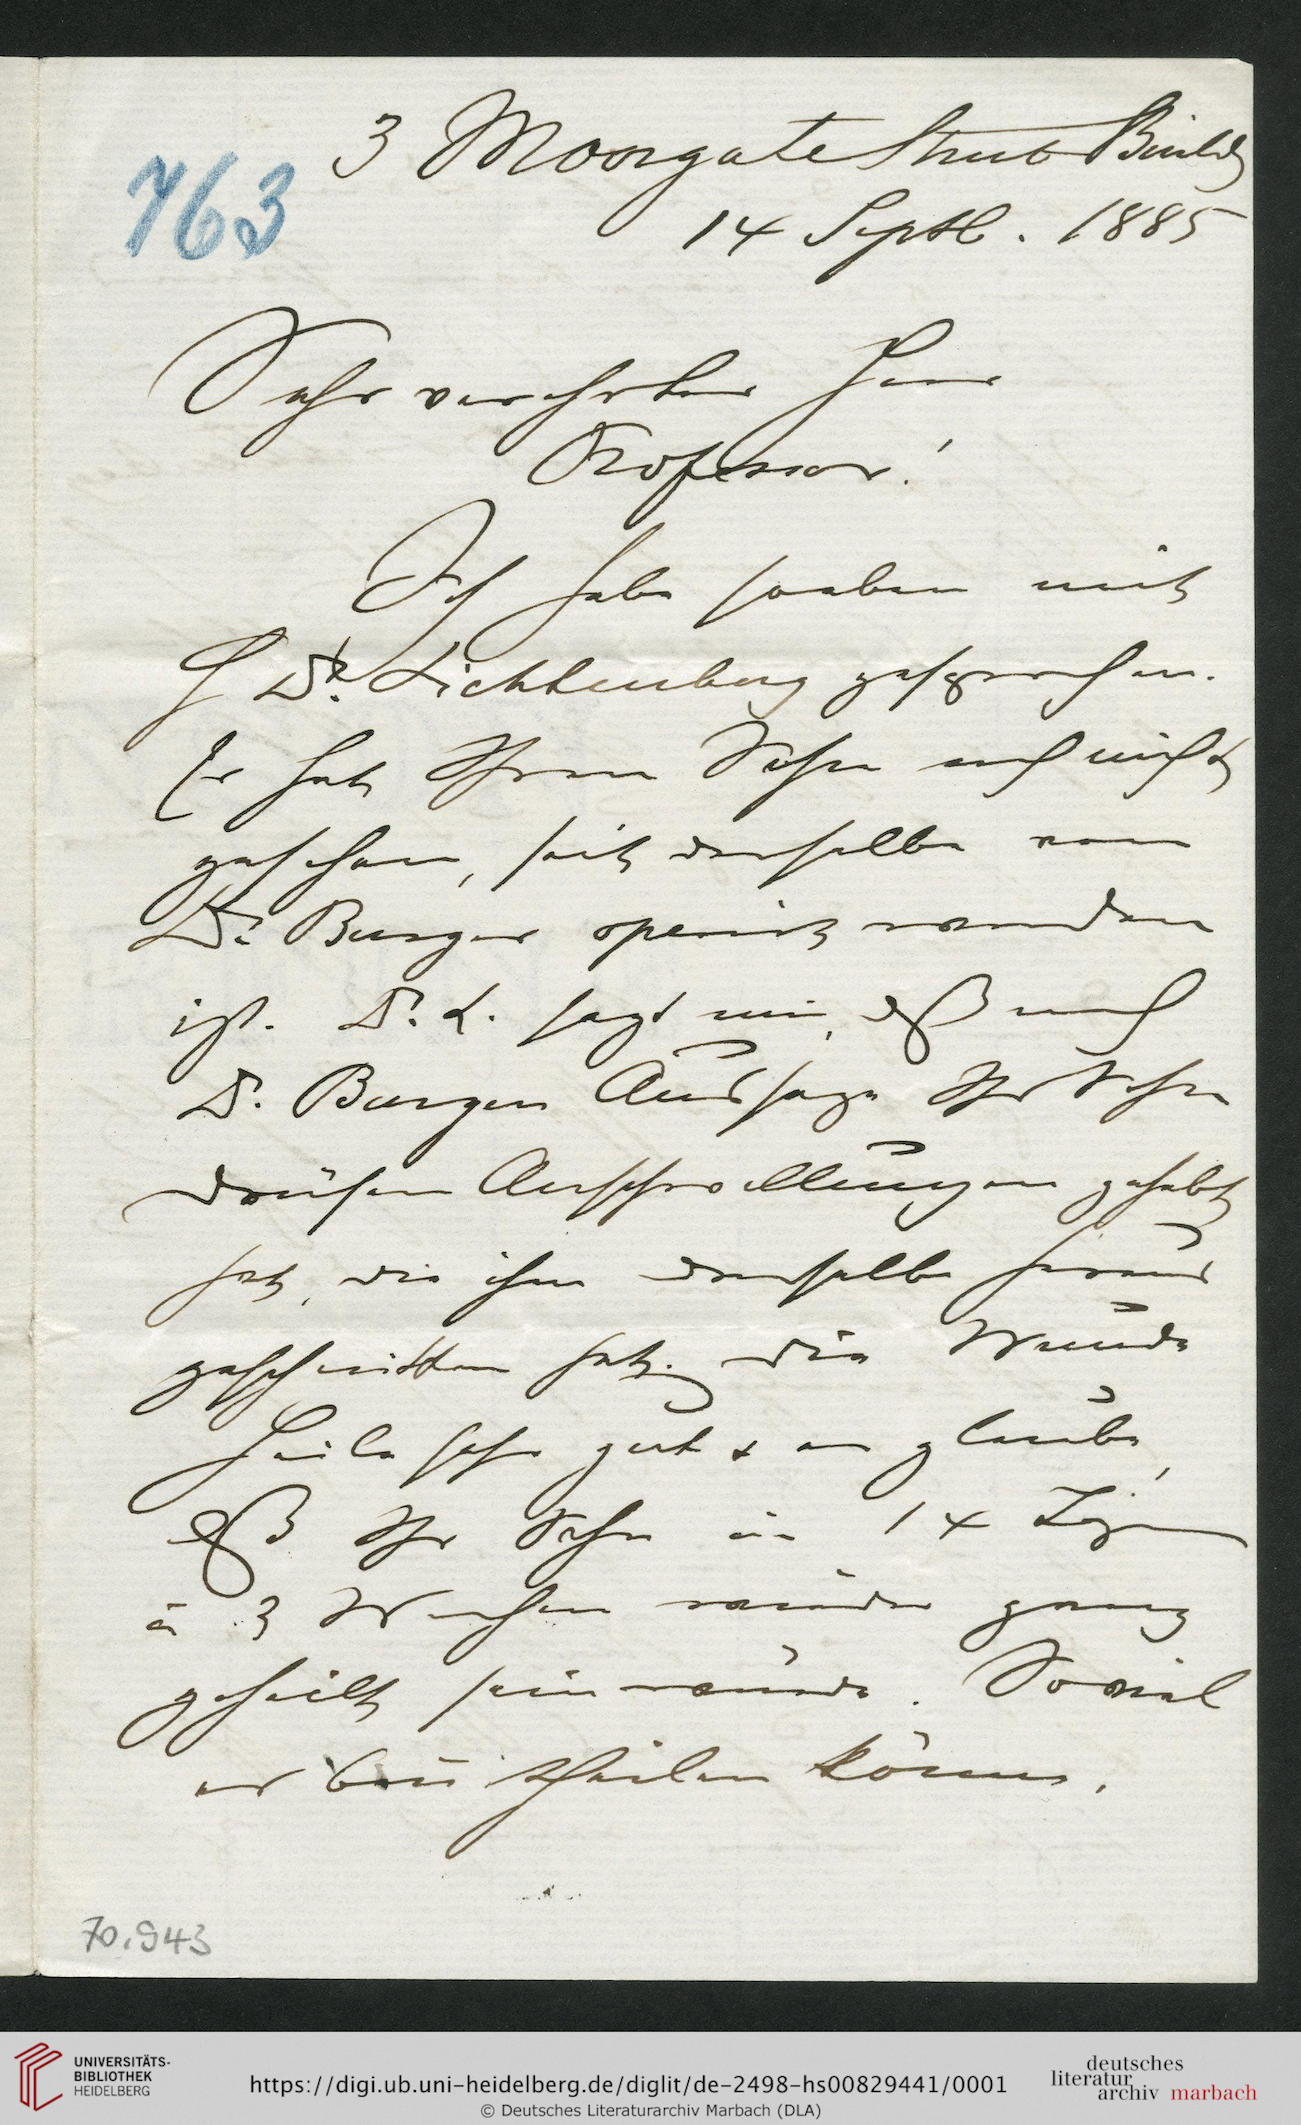 763
3 Moorgate Street Buildgs
14 Septb. 1885
Sehr verehrter Herr
Professor!
Ich habe soeben mit
H Dr. Lichtenberg gesprochen.
Er hat Ihren Sohn noch nicht
gesehen, seit derselbe von
Dr. Burger operirt worden
ist. Dr. L. sagt mir, daß nach
Dr. Burgers Aussage Ihr Sohn
Drüsen Anschwellungen gehabt
hat, die ihm derselbe heraus
geschnitten hat. Die Wunde
heile sehr gut & er glaube,
daß Ihr Sohn in 14 Tagen
à 3 Wochen wieder ganz
geheilt sein würde. Soviel
er beurtheilen könne.
70.943
UNIVERSITÄTS-
BIBLIOTHEK
HEIDELBERG
https://digi.ub.uni-heidelberg.de/diglit/de-2498-hs00829441/0001
© Deutsches Literaturarchiv Marbach (DLA)
deutsches
literatur
archiv marbach